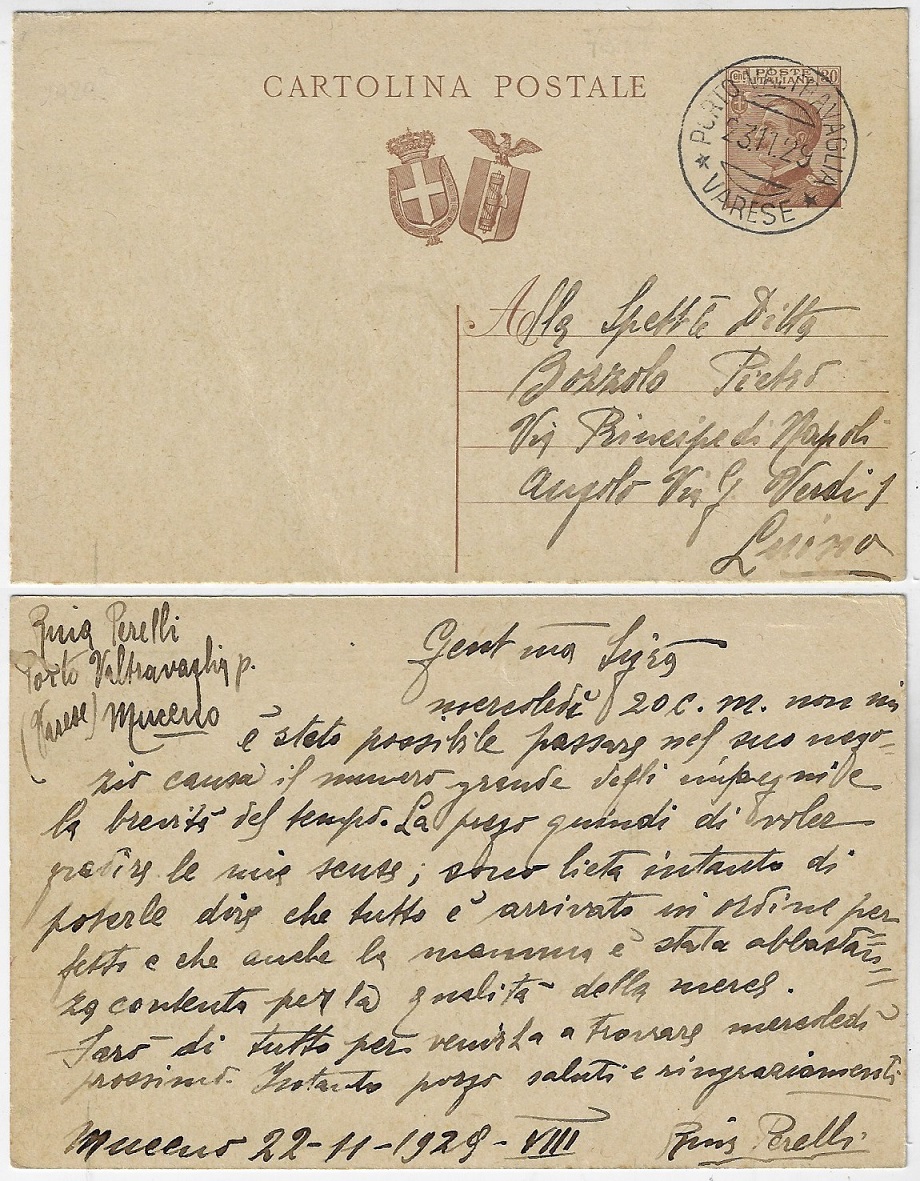 CARTOLINA POSTALE
Cent. POSTE ITALIANE 30
PORTO VALTRAVAGLIA
23.11.29
★ VARESE ★
Alla Spett.le Ditta
Bozzolo Pietro
Via Principe di Napoli
Angolo Via G. Verdi 1
Luino
Perelli
Porto Valtravaglia p.
(Varese) Muceno
Gent ma Sig.ra
mercoledì 20 c. m. non mi
è stato possibile passare nel suo nego-
zio causa il numero grande degli impegni e
la brevità del tempo. La prego quindi di voler
gradire le mie scuse; sono lieta intanto di
poterle dire che tutto è arrivato in ordine per=
fetto e che anche la mamma è stata abbastan=
za contenta per la qualità della merce.
Farò di tutto per venirla a trovare mercoledì
prossimo. Intanto porgo saluti e ringraziamenti
Muceno 22-11-1929-VIII
Perelli